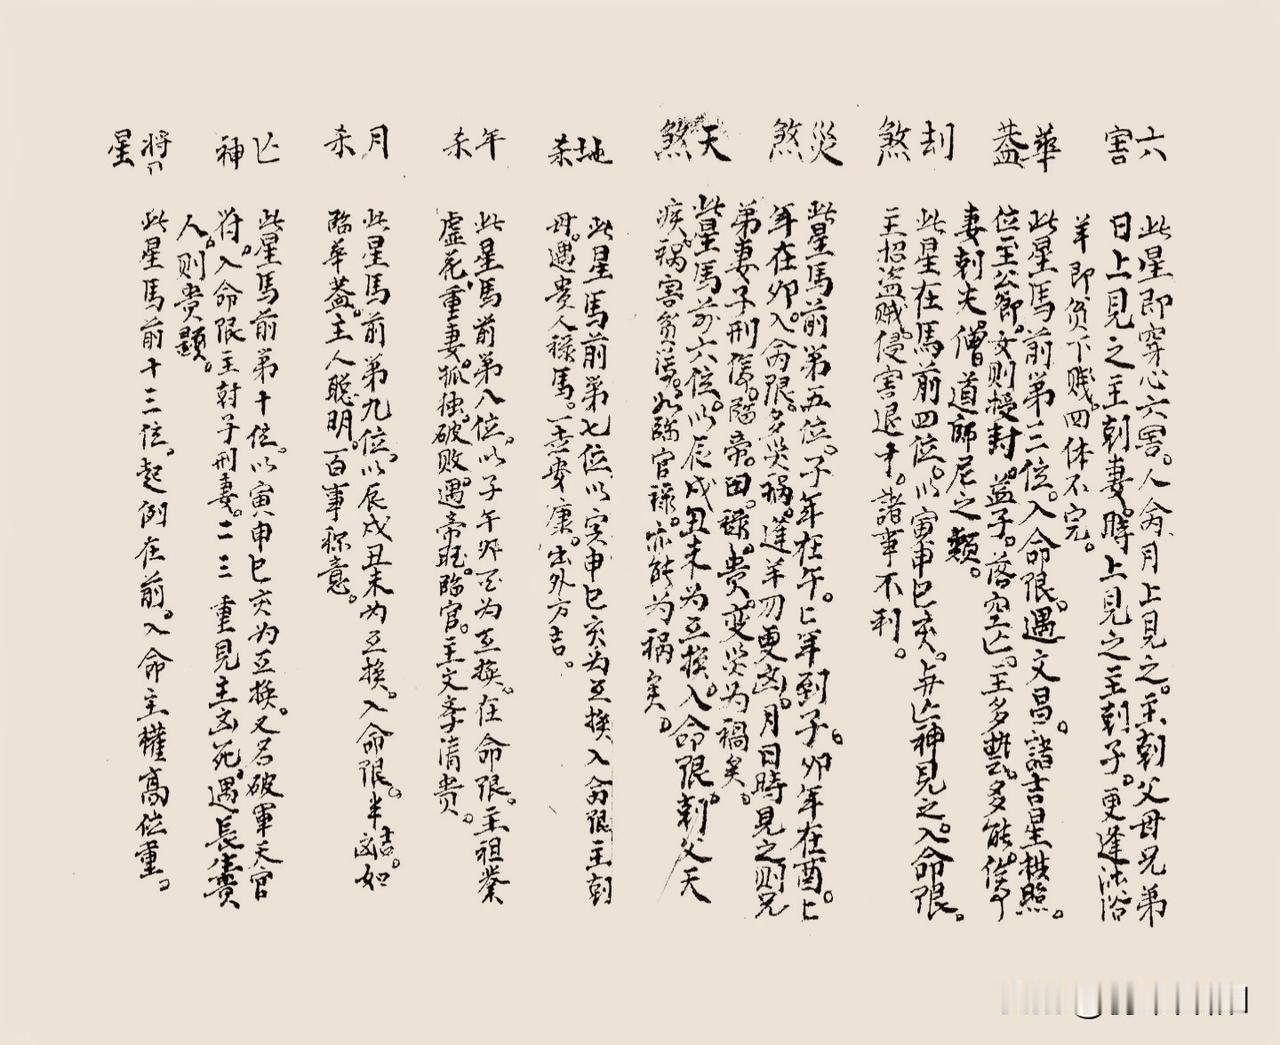 六害
此星即穿心六害。人命月上見之。主刑父母兄弟
日上見之主刑妻。時上見之主刑子。更逢沐浴
羊即貧下賤。四体不完。
華蓋
此星馬前第三位。入命限。遇文昌。諸吉星拱照。
位主公卿。女则授封。益子。落空亡。主多藝。多能。
妻刺夫僧道師尼之類。
刦煞
此星在馬前四位。以寅申巳亥。与亡神見之。入命限。
主招盗賊。侵害退。諸事不利。
災煞
此星馬前第五位。子年在午。年到子。卯年在酉。
年在卯。入命限。多災禍。逢羊刃更凶。月日時見之则兄
弟妻子刑傷。臨帝。田。禄。貴。变災为禍矣。
天煞
此星馬前六位。以辰戌丑未为互换。入命限。刺父天
疾。祸害貧。臨官禄。亦能为祸矣。
地杀
此星馬前第七位以寅申巳亥为互换入命限主刺
母。遇贵人禄馬。主安康。出外方吉。
年杀
此星馬前第八位。以子午卯酉为互换。在命限。主祖業
虚花。重妻。孤独。破败。遇帝旺。臨官。主文学清贵。
月杀
此星馬前第九位。以辰戌丑未为互换。入命限。半吉。凶如
臨華蓋。主人聪明。百事称意。
亡神
此星馬前第十位。以寅申巳亥为互换。又名破軍天官
符。入命限主尅子刑妻。二三重見主凶死。遇長貴
人。则贵顯。
將星
此星馬前十三位。起例在前。入命主權高位重。